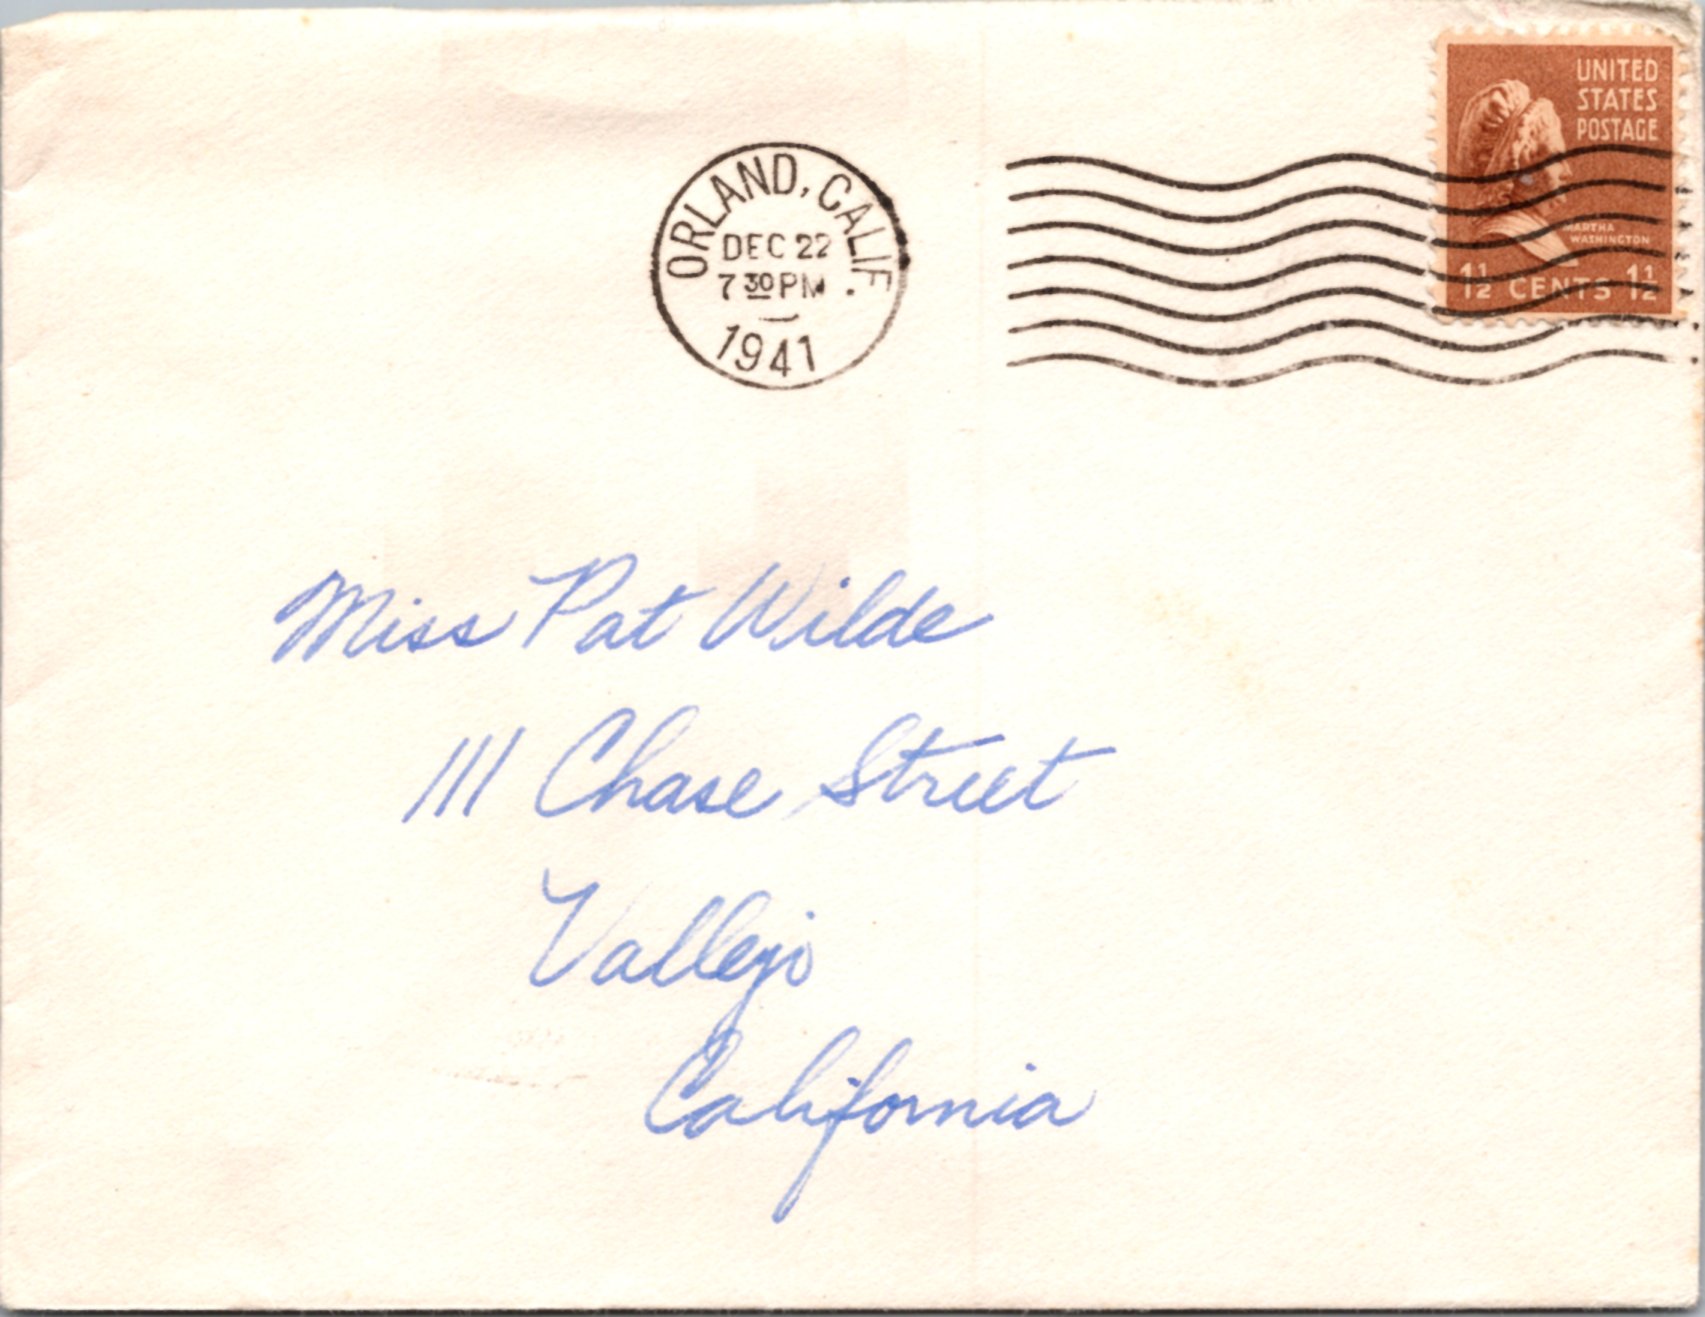 UNITED
STATES
POSTAGE
MARTHA
WASHINGTON
1½ CENTS 1½
ORLAND, CALIF.
DEC 22
7 30 PM
1941
Miss Pat Wilde
111 Chase Street
Vallejo
California